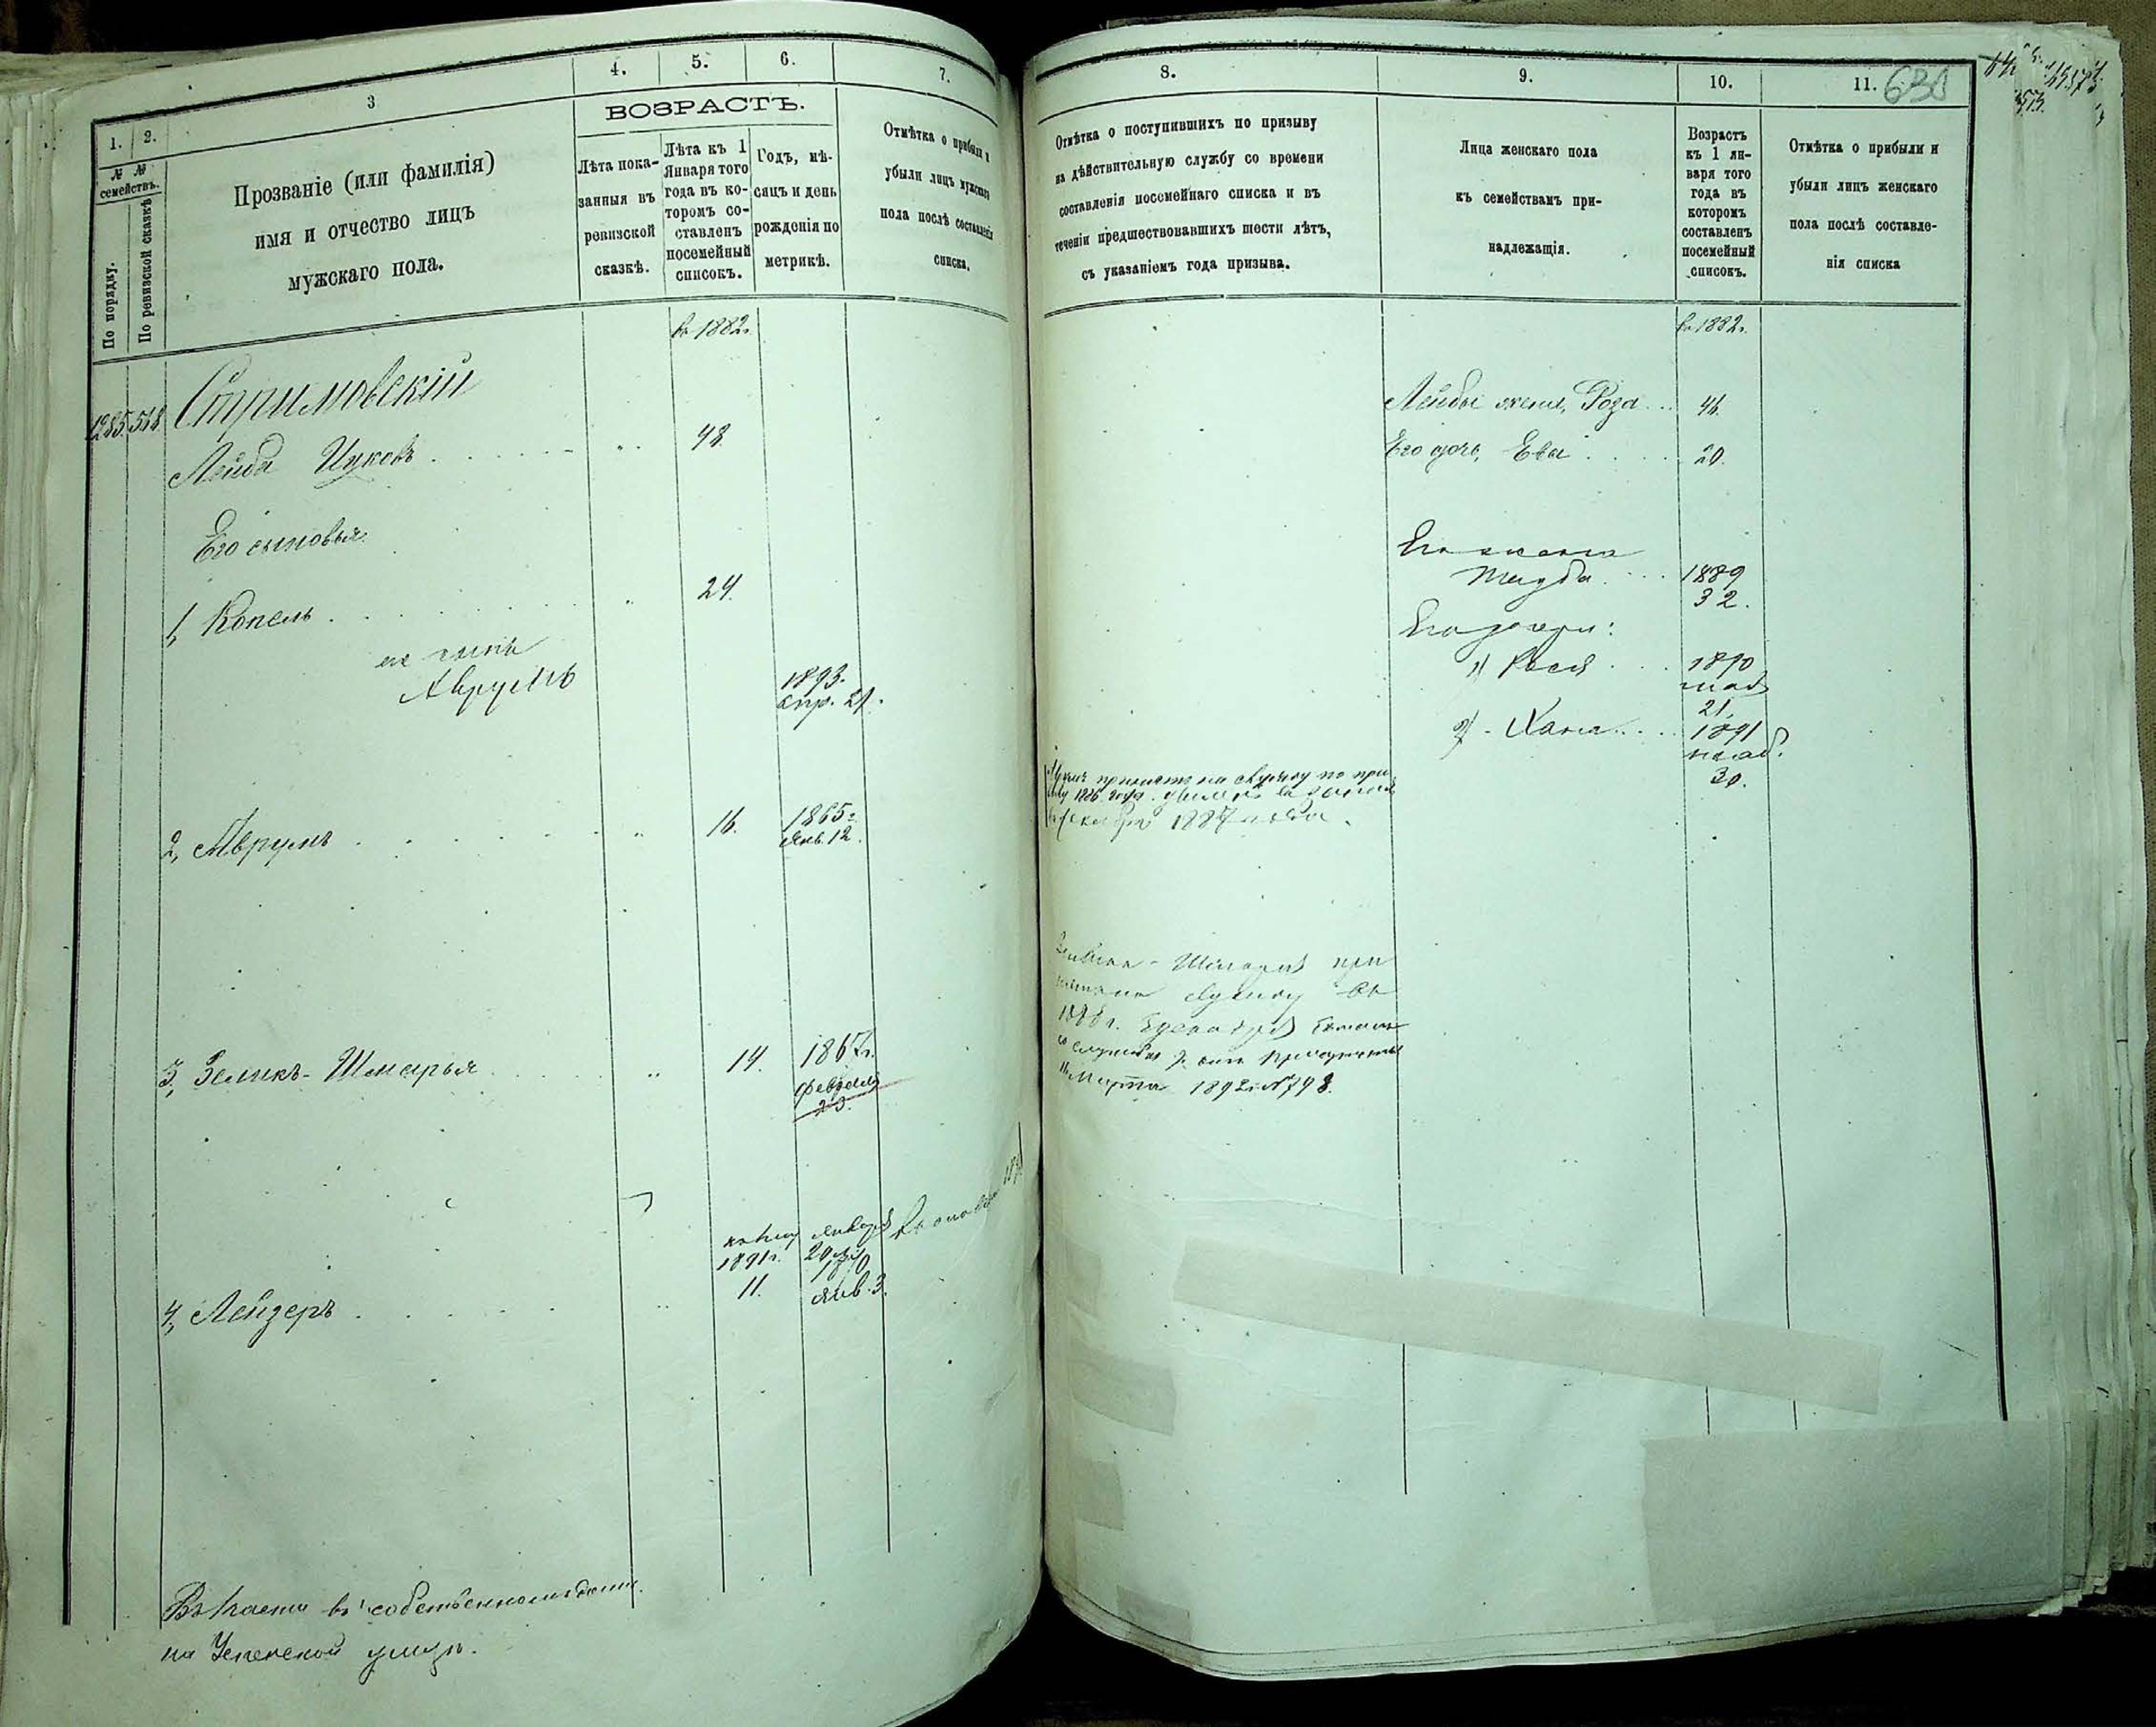 1.
2.
3
4.
5.
6.
7.
№ №
семействъ.
По порядку.
По ревизской сказкѣ
Прозваніе (или фамилія)
имя и отчество лицъ
мужскаго пола.
ВОЗРАСТЪ.
Лѣта пока-
занныя въ
ревизской
сказкѣ.
Лѣта къ 1
Января того
года въ ко-
торомъ со-
ставленъ
посемейный
списокъ.
Годъ, мѣ-
сяцъ и день
рожденія по
метрикѣ.
Отмѣтка о прибыли и
убыли лицъ мужскаго
пола послѣ составленія
списка.
въ 1882г.
1285. 518
Стримовскій
Лейба Ицковъ 48.
Его сыновья:
1, Копель 24.
его сынъ
Аврумъ
1893.
апр. 21.
2, Аврумъ 16. 1865г.
Янв. 12.
3, Зеликъ-Шмарья 14. 1867г.
февраля
23.
января
1891г. 20
1870
4, Лейзеръ 11. янв. 3.
въ собственномъ домѣ
на Успенской улицѣ.
8.
9.
10.
11.
630
Отмѣтка о поступившихъ по призыву
на дѣйствительную службу со времени
составленія посемейнаго списка и въ
теченіи предшествовавшихъ шести лѣтъ,
съ указаніемъ года призыва.
Лица женскаго пола
къ семействамъ при-
надлежащія.
Возрастъ
къ 1 ян-
варя того
года въ
которомъ
составленъ
посемейный
списокъ.
Отмѣтка о прибыли и
убыли лицъ женскаго
пола послѣ составле-
нія списка
въ 1882г.
Лейбы жена, Роза 46.
Его дочь, Ева 20.
Его жена
1889
32.
Его дочери:
1) Рася 1890
21.
2) Хана 1891
30.
Аврумъ принятъ на службу по при-
зыву 1886 года
1887 года.
Шмарья при-
нятъ на службу въ
1888г.
Марта 1892г. № 798.